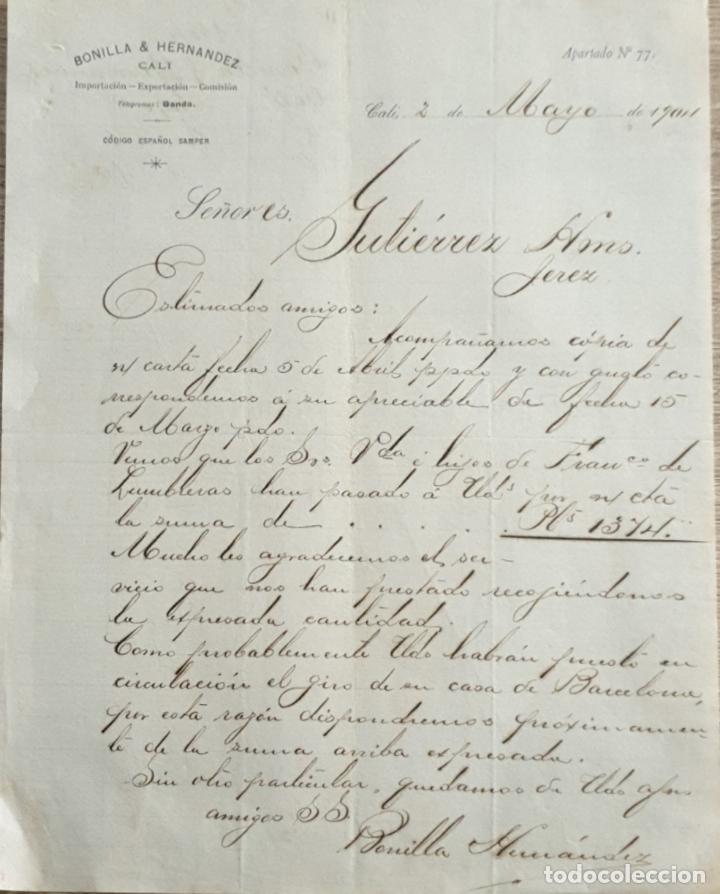 BONILLA & HERNANDEZ
CALI
Importación — Exportación — Comisión
Telegramas: Banda.
CÓDIGO ESPAÑOL SAMPER
Apartado Nº 77.
Cali, 2 de Mayo de 1901
Señores.
Gutiérrez Hms.
Jerez
Estimados amigos:
Acompañamos cópia de
n/ carta fecha 5 de Abril ppdo y con gusto co-
rrespondemos á su apreciable de fecha 15
de Marzo pdo.
Vemos que los Srs. Vda é hijos de Franco de
Lumbreras han pasado á Uds por n/ cta
la suma de . . . . . Pts 1374.
Mucho les agradecemos el ser-
vicio que nos han prestado recojiéndonos
la expresada cantidad.
Como probablemente Uds habrán puesto en
circulación el giro de su casa de Barcelona,
por esta razón dispondremos próximamen-
te de la suma arriba expresada.
Sin otro particular, quedamos de Uds afms
amigos SS
Bonilla Hernández
todocoleccion